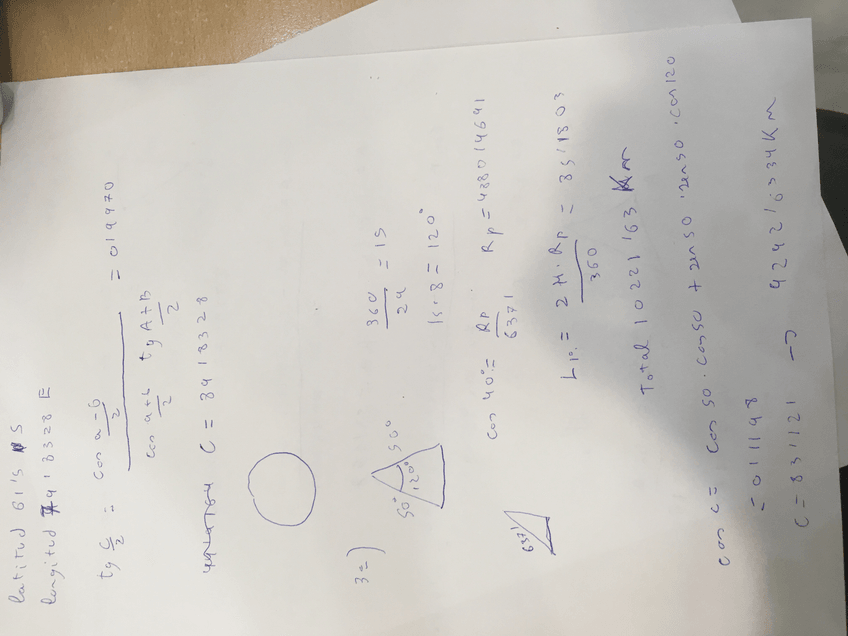 latitud 61'5 S
longitud 34'8328 E
tg c/2 = cos a-b/2 / cos a+b/2 tg A+B/2 = 0'4470
C = 34'8328
3=)
50° 50°
120°
360/24 = 15
15·8 = 120°
6371
cos 40° = Rp/6371 Rp = 4880'4641
L1º = 2π·Rp/360 = 85'1803
Total 10221'63 Km
cos c = cos 50 · cos 50 + sen 50 · sen 50 · cos 120
= 0'1198
C = 83'1121 → 9242'6334 Km